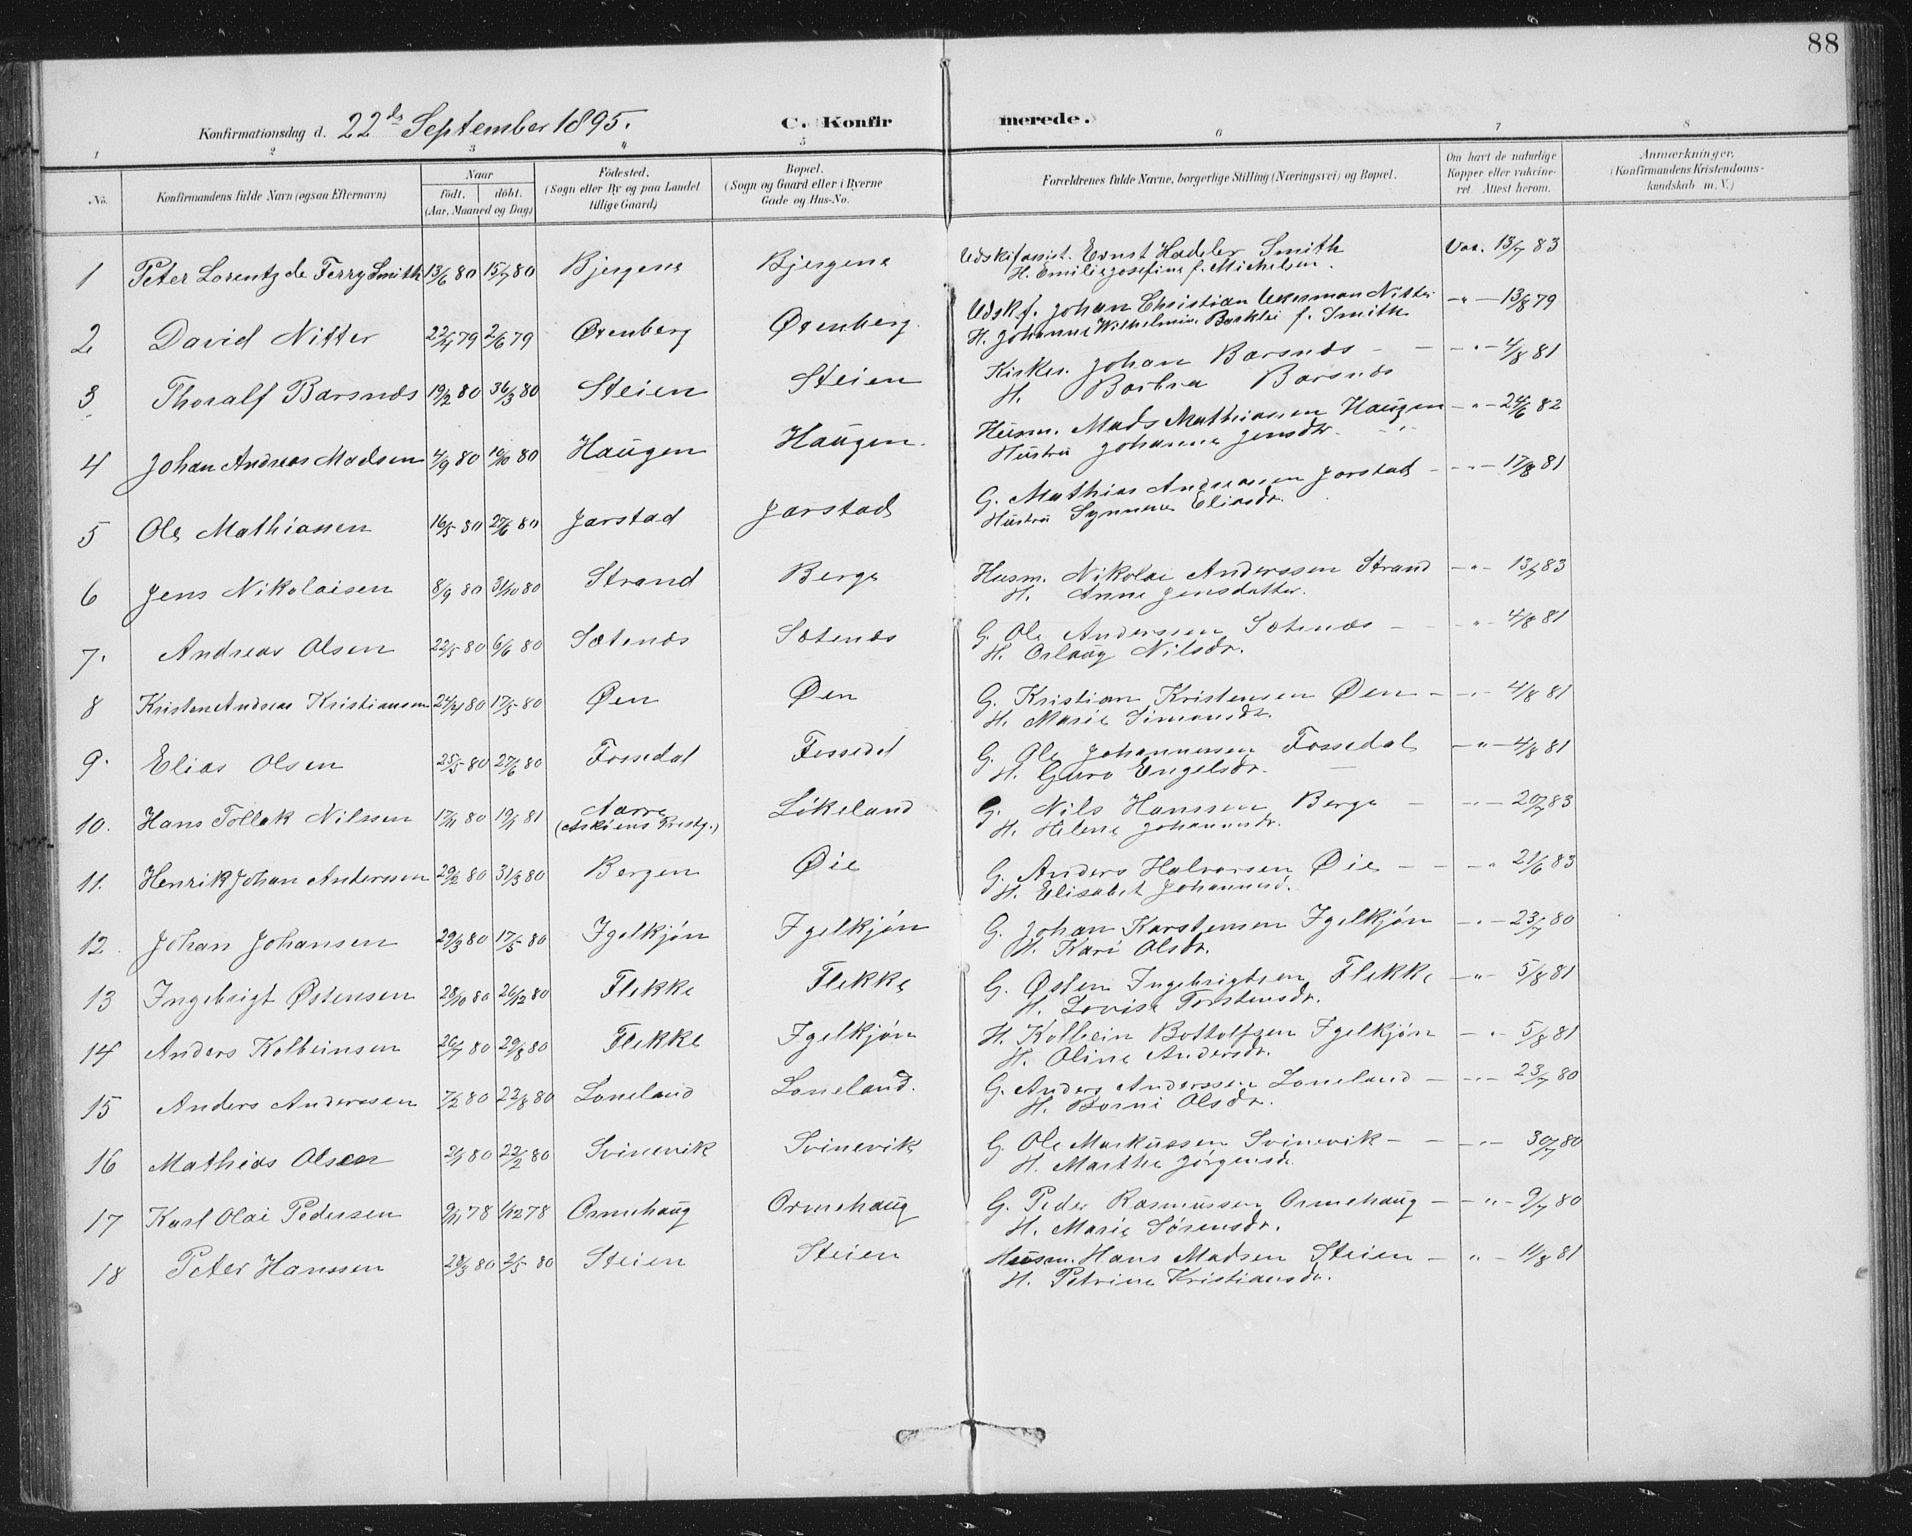 88
Konfirmationsdag d. 22de September 1895.
C. Konfirmerede.
1 2 3 4 5 6 7 8
No.
Konfirmandens fulde Navn (ogsaa Efternavn)
Naar
födt. döbt.
(Aar, Maaned og Dag)
Födested.
(Sogn eller By og paa Landet
tillige Gaard)
Bopæl.
(Sogn og Gaard eller i Byerne
Gade og Hus-No.
Forældrenes fulde Navne, borgerlige Stilling (Næringsvei) og Bopæl.
Om havt de naturlige
Kopper eller vakcine-
ret. Attest herom.
Anmærkninger.
(Konfirmandens Kristendoms-
kundskab m. V.)
1 Peter Lorentz de Ferry Smith 13/6 80 15/7 80 Bjergene Bjergene Udskifassist. Ernst Hadeler Smith Vac. 13/7 83
H. Emilie Josefine f. Michelsen.
2 David Nitter 22/4 79 2/6 79 Öxenberg Öxenberg. Udskf. Johan Christian Nitter -"- 13/8 79
H. Johanne Wilhelmine f. Smith
3 Thoralf Barsnes 19/2 80 /3 80 Steien Steien Kirkes. Johan Barsnes - -"- 4/8 81
H. Barbra Barsnes
4 Johan Andreas Madsen 4/9 80 10/10 80 Haugen Haugen. Husm. Mads Mathiassen Haugen -"- 24/6 82
Hustru Johanne Jensdtr.
5 Ole Mathiassen 16/5 80 27/6 80 Jarstad Jarstad G. Mathias Andreassen Jarstad -"- 17/8 81
Hustru Synneve Eliasdr.
6 Jens Nikolaisen 8/9 80 31/10 80 Strand Berge Husm. Nikolai Anderssen Strand -"- 13/7 83
H. Anne Jensdatter.
7. Andreas Olsen 22/5 80 6/6 80 Sætenes Sætenes G. Ole Anderssen Sætenes - " 4/8 81
H. Orlaug Nilsdr.
8 Kristen Andreas Kristiansen 24/4 80 17/5 80 Øen Øen G. Kristian Kristensen Øen -"- 4/8 81
H. Marie Simonsdr.
9. Elias Olsen 25/5 80 27/6 80 Fossedal Fossedal G. Ole Johannessen Fossedal -"- 4/8 81
H. Guro Engelsdr.
10. Hans Tollak Nilssen 17/11 80 19/1 81 Aarre Løkeland G. Nils Hanssen Berge -"- 20/7 83
(Askøens Prestg.) H. Helene Johannesdr.
11. Henrik Johan Anderssen 29/2 80 31/3 80 Bergen Øie G. Anders Halvorsen Øie - -" 21/6 83
H. Elisabet Johannesd.
12. Johan Johansen 29/3 80 17/5 80 Igelkjøn Igelkjøn G. Johan Karstensen Igelkjøn -"- 23/7 80
H. Kari Olsdr.
13 Ingebrigt Østensen 28/10 80 26/12 80 Flekke Flekke G. Østen Ingebrigtsen Flekke -"- 5/8 81
H. Lovise Torstensdr.
14 Anders Kolbeinsen 26/7 80 29/8 80 Flekke Igelkjøn H. Kolbein Bottolfsen Igelkjøn -"- 5/8 81
H. Oline Andersdr.
15 Anders Anderssen 7/2 80 22/8 80 Loneland Loneland. G. Anders Anderssen Loneland -"- 23/7 80
H. Borni Olsdr.
16 Mathias Olsen 2/1 80 22/2 80 Svinevik Svinevik G. Ole Markussen Svinevik - -"- 30/7 80
H. Marthe Jørgensdr.
17 Karl Olai Pedersen 9/11 78 1/12 78 Ormehaug Ormehaug G. Peder Rasmussen Ormehaug -"- 9/7 80
H. Marie Sørensdr.
18 Peter Hanssen 28/3 80 2/5 80 Steien Steien Husm. Hans Madsen Steien - " - 11/8 81
H. Petrine Kristiansdr.